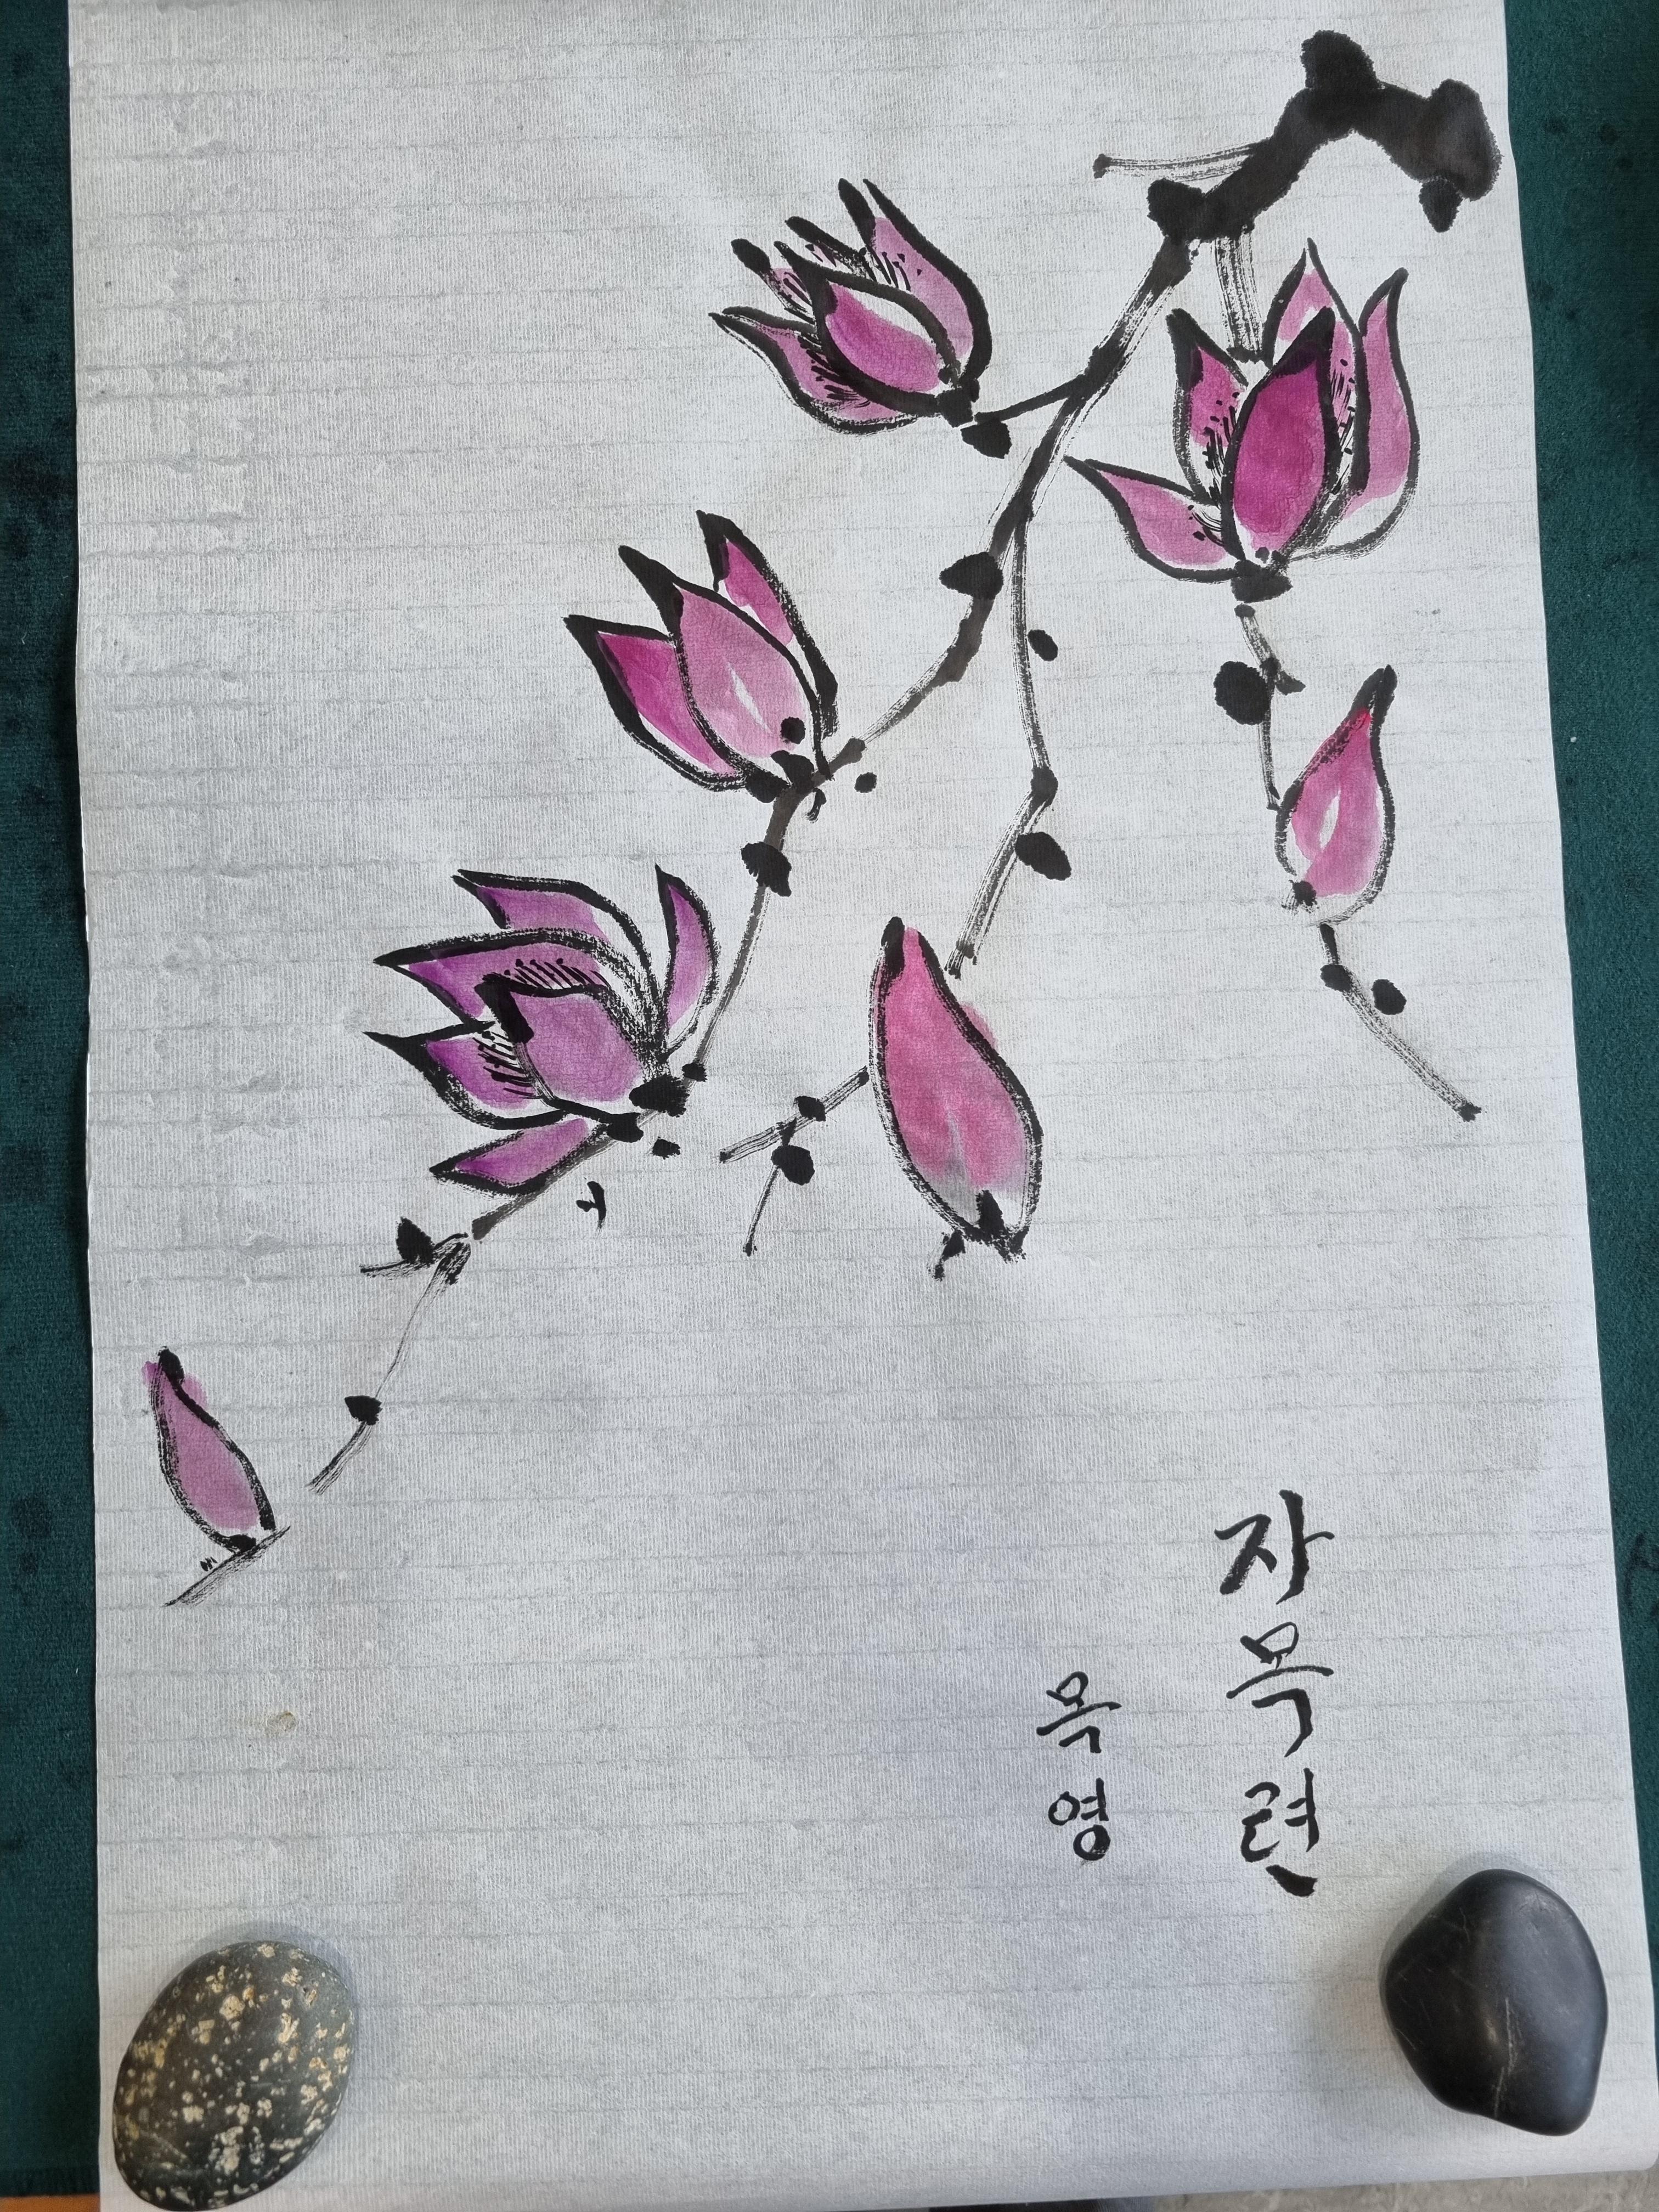 자목련
목영